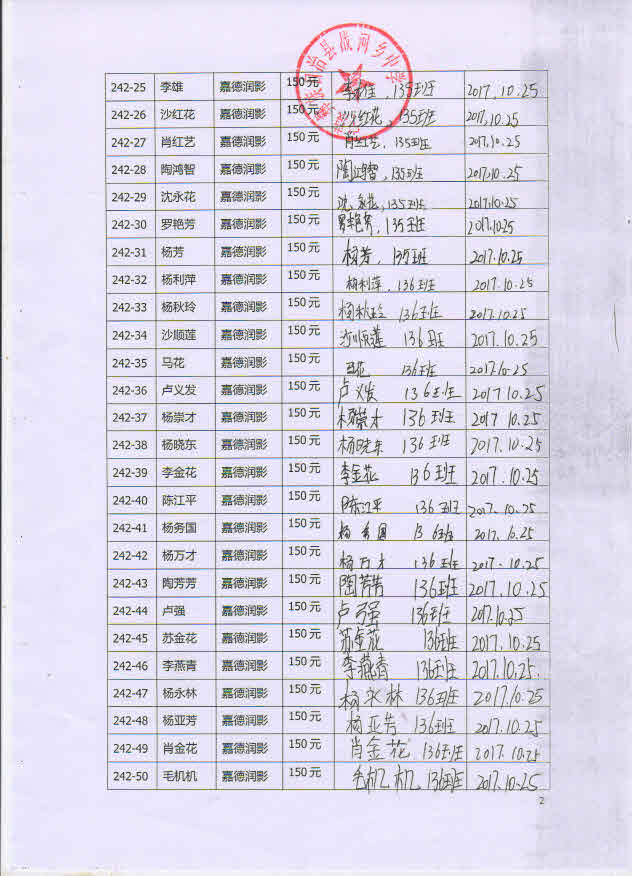 治县战河乡中学
242-25 李雄 嘉德润影 150元 李雄, 135班 2017.10.25
242-26 沙红花 嘉德润影 150元 沙红花, 135班 2017.10.25
242-27 肖红艺 嘉德润影 150元 肖红艺, 135班 2017.10.25
242-28 陶鸿智 嘉德润影 150元 陶鸿智, 135班 2017.10.25
242-29 沈永花 嘉德润影 150元 沈永花, 135班 2017.10.25
242-30 罗艳芳 嘉德润影 150元 罗艳芳, 135班 2017.10.25
242-31 杨芳 嘉德润影 150元 杨芳, 135班 2017.10.25
242-32 杨利萍 嘉德润影 150元 杨利萍, 136班 2017.10.25
242-33 杨秋玲 嘉德润影 150元 杨秋玲 136班 2017.10.25
242-34 沙顺莲 嘉德润影 150元 沙顺莲 136班 2017.10.25
242-35 马花 嘉德润影 150元 马花 136班 2017.10.25
242-36 卢义发 嘉德润影 150元 卢义发 136班 2017 10.25
242-37 杨崇才 嘉德润影 150元 杨崇才 136班 2017 10.25
242-38 杨晓东 嘉德润影 150元 杨晓东 136班 2017 10.25
242-39 李金花 嘉德润影 150元 李金花 136班 2017.10.25
242-40 陈江平 嘉德润影 150元 陈江平 136班 2017.10.25
242-41 杨务国 嘉德润影 150元 杨务国 136班 2017.10.25
242-42 杨万才 嘉德润影 150元 杨万才 136班 2017.10.25
242-43 陶芳芳 嘉德润影 150元 陶芳芳 136班 2017.10.25
242-44 卢强 嘉德润影 150元 卢强 136班 2017.10.25
242-45 苏金花 嘉德润影 150元 苏金花 136班 2017.10.25
242-46 李燕青 嘉德润影 150元 李燕青 136班 2017.10.25.
242-47 杨永林 嘉德润影 150元 杨永林 136班 2017.10.25
242-48 杨亚芳 嘉德润影 150元 杨亚芳 136班 2017.10.25
242-49 肖金花 嘉德润影 150元 肖金花 136班 2017.10.25
242-50 毛机机 嘉德润影 150元 毛机机, 136班 2017.10.25
2